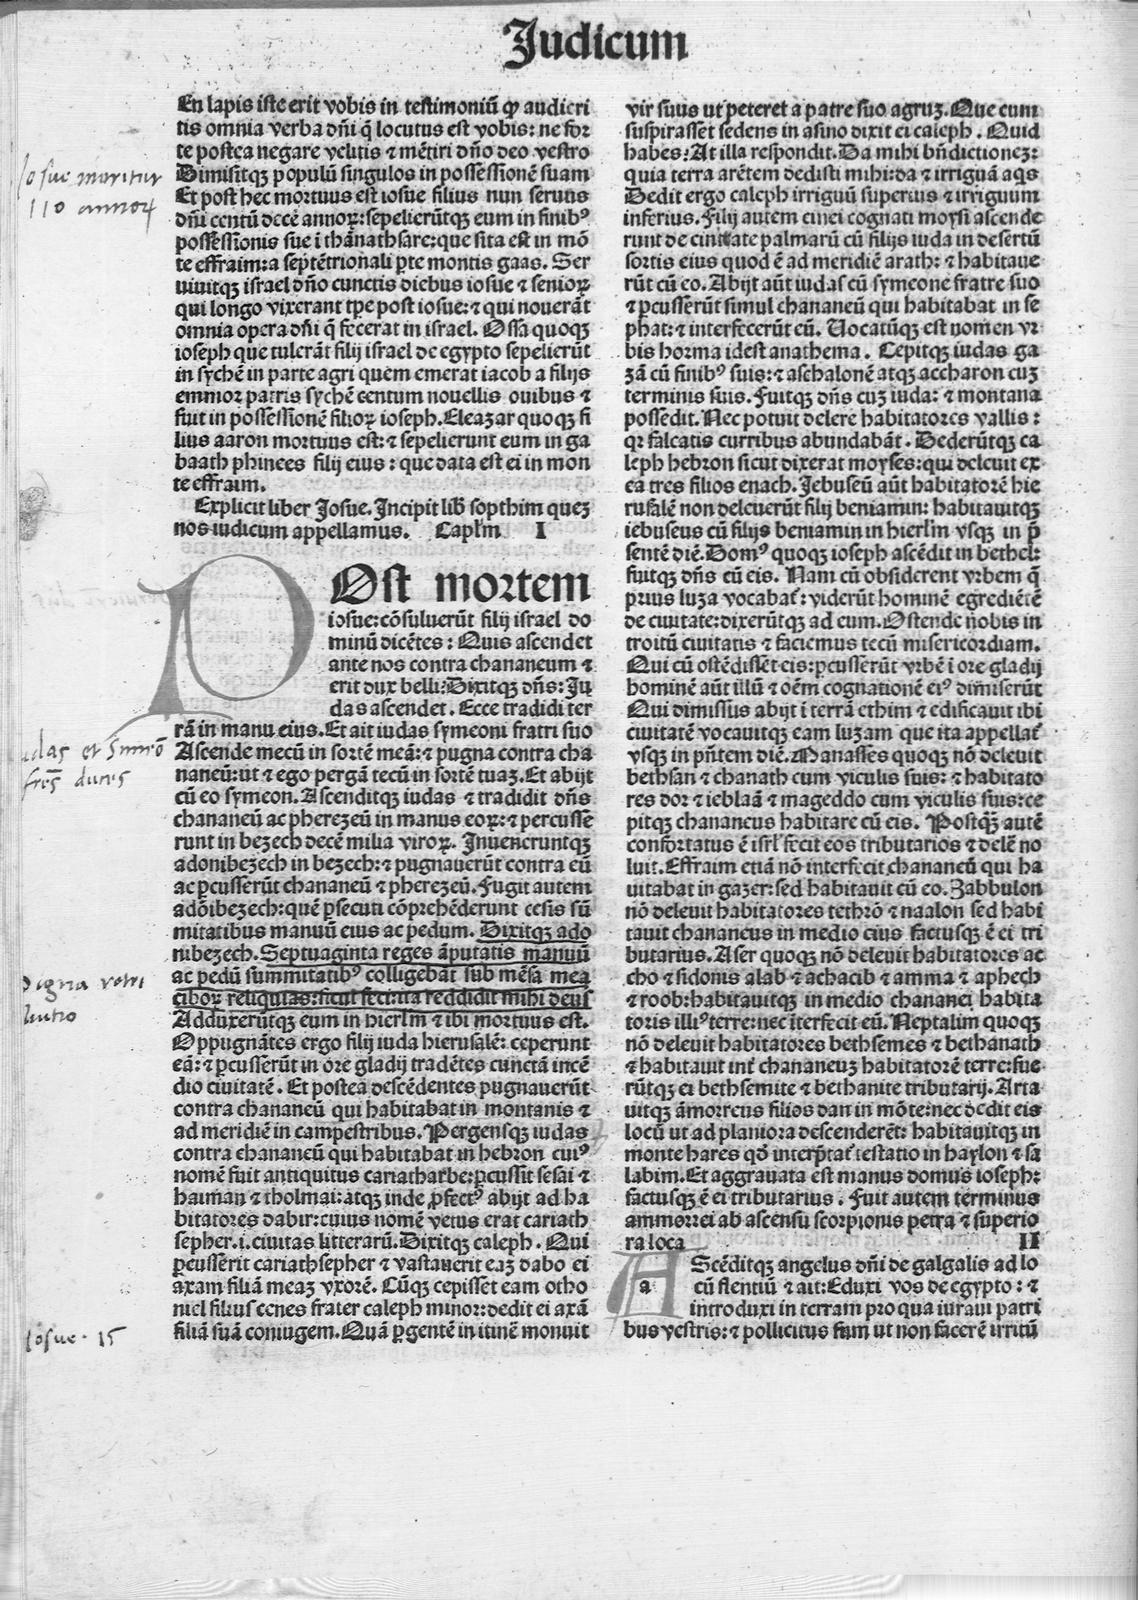 Judicum
En lapis iste erit vobis in testimoniū ꝙ audieri
tis omnia verba dn̄i q̄ locutus est vobis: ne for
te postea negare velitis ⁊ mētiri dn̄o deo vestro
Dimisitqꝫ populū singulos in possessionē suam
Et post hec mortuus est iosue filius nun seruus
dn̄i centū decē annoꝝ: sepelierūtqꝫ eum in finibꝰ
possessionis sue ī thānathsare: que sita est in mō
te effraim: a septētrionali ꝑte montis gaas. Ser
uiuitqꝫ israel dn̄o cunctis diebus iosue ⁊ senioꝝ
qui longo vixerant tꝑe post iosue: ⁊ qui nouerāt
omnia opera dn̄i q̄ fecerat in israel. Ossa quoqꝫ
ioseph que tulerāt filij israel de egypto sepelierūt
in sychē in parte agri quem emerat iacob a filijs
emmor patris sychē centum nouellis ouibus ⁊
fuit in possessionē filioꝝ ioseph. Eleazar quoqꝫ fi
lius aaron mortuus est: ⁊ sepelierunt eum in ga
baath phinees filij eius: que data est ei in mon
te effraim.
Explicit liber Josue. Incipit lib̄ sopthim quez
nos iudicum appellamus. Caplm̄ I
POst mortem
iosue: cōsuluerūt filij israel do
minū dicētes: Quis ascendet
ante nos contra chananeum ⁊
erit dux belli: Dixitqꝫ dn̄s: Ju
das ascendet. Ecce tradidi ter
rā in manu eius. Et ait iudas symeoni fratri suo
Ascende mecū in sortē meā: ⁊ pugna contra cha
naneū: ut ⁊ ego pergā tecū in sortē tuaꝫ. Et abijt
cū eo symeon. Ascenditqꝫ iudas ⁊ tradidit dn̄s
chananeū ac pherezeū in manus eoꝝ: ⁊ percusse
runt in bezech decē milia viroꝝ. Inueneruntqꝫ
adonibezech in bezech: ⁊ pugnauerūt contra eū
ac ꝑcusserūt chananeū ⁊ pherezeū. Fugit autem
adōibezech: quē ꝑsecuti cōprehēderunt cesis sū
mitatibus manuū eius ac pedum. Dixitqꝫ ado
nibezech. Septuaginta reges āputatis manuū
ac pedū summitatibꝰ colligebāt sub mēsa mea
ciboꝝ reliquias: sicut feci: ita reddidit mihi deus
Adduxerūtqꝫ eum in hierlm̄ ⁊ ibi mortuus est.
Oppugnātes ergo filij iuda hierusalē: ceperunt
eā: ⁊ ꝑcusserūt in ore gladij tradētes cunctā incē
dio ciuitatē. Et postea descēdentes pugnauerūt
contra chananeū qui habitabat in montanis ⁊
ad meridiē in campestribus. Pergensqꝫ iudas
contra chananeū qui habitabat in hebron cuiꝰ
nomē fuit antiquitus cariatharbe: ꝑcussit sesai ⁊
haiman ⁊ tholmai: atqꝫ inde ꝓfectꝰ abijt ad ha
bitatores dabir: cuius nomē vetus erat cariath
sepher. i. ciuitas litterarū. Dixitqꝫ caleph. Qui
ꝑcusserit cariathsepher ⁊ vastauerit eaꝫ dabo ei
axam filiā meaꝫ vxorē. Cūqꝫ cepisset eam otho
niel filius cenes frater caleph minor: dedit ei axā
filiā suā coniugem. Quā ꝑgentē in itinē monuit
vir suus ut peteret a patre suo agruꝫ. Que cum
suspirasset sedens in asino dixit ei caleph. Quid
habes: At illa respondit. Da mihi bn̄dictionez:
quia terra arētem dedisti mihi: da ⁊ irriguā aq̄s
Dedit ergo caleph irriguū superius ⁊ irriguum
inferius. Filij autem cinei cognati moysi ascende
runt de ciuitate palmarū cū filijs iuda in desertū
sortis eius quod ē ad meridiē arath: ⁊ habitaue
rūt cū eo. Abijt aūt iudas cū symeone fratre suo
⁊ ꝑcusserūt simul chananeū qui habitabat in se
phat: ⁊ interfecerūt eū. Uocatūqꝫ est nomen vr
bis horma idest anathema. Cepitqꝫ iudas ga
zā cū finibꝰ suis: ⁊ aschalonē atqꝫ accharon cuꝫ
terminis suis. Fuitqꝫ dn̄s cuꝫ iuda: ⁊ montana
possedit. Nec potuit delere habitatores vallis:
qꝛ falcatis curribus abundabāt. Dederūtqꝫ ca
leph hebron sicut dixerat moyses: qui deleuit ex
ea tres filios enach. Jebuseū aūt habitatorē hie
rusalē non deleuerūt filij beniamin: habitauitqꝫ
iebuseus cū filijs beniamin in hierlm̄ vsqꝫ in p̄
sentē diē. Domꝰ quoqꝫ ioseph ascēdit in bethel:
fuitqꝫ dn̄s cū eis. Nam cū obsiderent vrbem q̄
prius luza vocabat̄: viderūt hominē egrediētē
de ciuitate: dixerūtqꝫ ad eum. Ostende nobis in
troitū ciuitatis ⁊ faciemus tecū misericordiam.
Qui cū ostēdisset eis: ꝑcusserūt vrbē ī ore gladij
hominē aūt illū ⁊ oēm cognationē eiꝰ dimiserūt
Qui dimissus abijt ī terrā ethim ⁊ edificauit ibi
ciuitatē vocauitqꝫ eam luzam que ita appellat̄
vsqꝫ in pn̄tem diē. Manasses quoqꝫ nō deleuit
bethsan ⁊ chanath cum viculis suis: ⁊ habitato
res dor ⁊ ieblaā ⁊ mageddo cum viculis suis: ce
pitqꝫ chananeus habitare cū eis. Postqꝫ̄ autē
confortatus ē isrl̄ fecit eos tributarios ⁊ delē no
luit. Effraim etiā nō interfecit chananeū qui ha
bitabat in gazer: sed habitauit cū eo. Zabbulon
nō deleuit habitatores tethrō ⁊ naalon sed habi
tauit chananeus in medio eius factusqꝫ ē ei tri
butarius. Aser quoqꝫ nō deleuit habitatores ac
cho ⁊ sidonis alab ⁊ achacib ⁊ amma ⁊ aphech
⁊ roob: habitauitqꝫ in medio chananei habita
toris illiꝰ terre: nec īterfecit eū. Neptalim quoqꝫ
nō deleuit habitatores bethsemes ⁊ bethanath
⁊ habitauit int̄ chananeuꝫ habitatorē terre: fue
rūtqꝫ ei bethsemite ⁊ bethanite tributarij. Arta
uitqꝫ āmorreus filios dan in mōte: nec dedit eis
locū ut ad planiora descenderēt: habitauitqꝫ in
monte hares qd̄ interp̄tat̄ testatio in haylon ⁊ sa
labim. Et aggrauata est manus domus ioseph:
factusqꝫ ē ei tributarius. Fuit autem terminus
ammorrei ab ascensu scorpionis petra ⁊ superio
ra loca II
AScēditqꝫ angelus dn̄i de galgalis ad lo
a cū flentiū ⁊ ait: Eduxi vos de egypto: ⁊
introduxi in terram pro qua iuraui patri
bus vestris: ⁊ pollicitus sum ut non facerē irritū
Iosue moritur
110 annoꝝ
udas et Simeō
frēs duces
igna
Iosue. 15